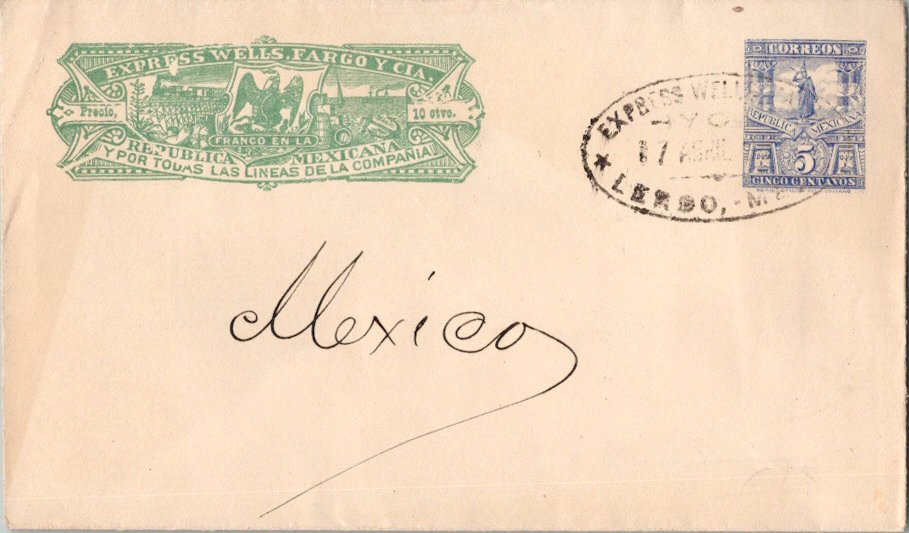 EXPRESS WELLS, FARGO Y CIA.
Precio,
10 ctvo.
FRANCO EN LA
REPUBLICA MEXICANA
Y POR TODAS LAS LINEAS DE LA COMPAÑIA
EXPRESS WELL
Y C
17 ABRIL
LERDO, - ME
CORREOS
REPUBLICA MEXICANA
5
CINCO CENTAVOS
Mexico